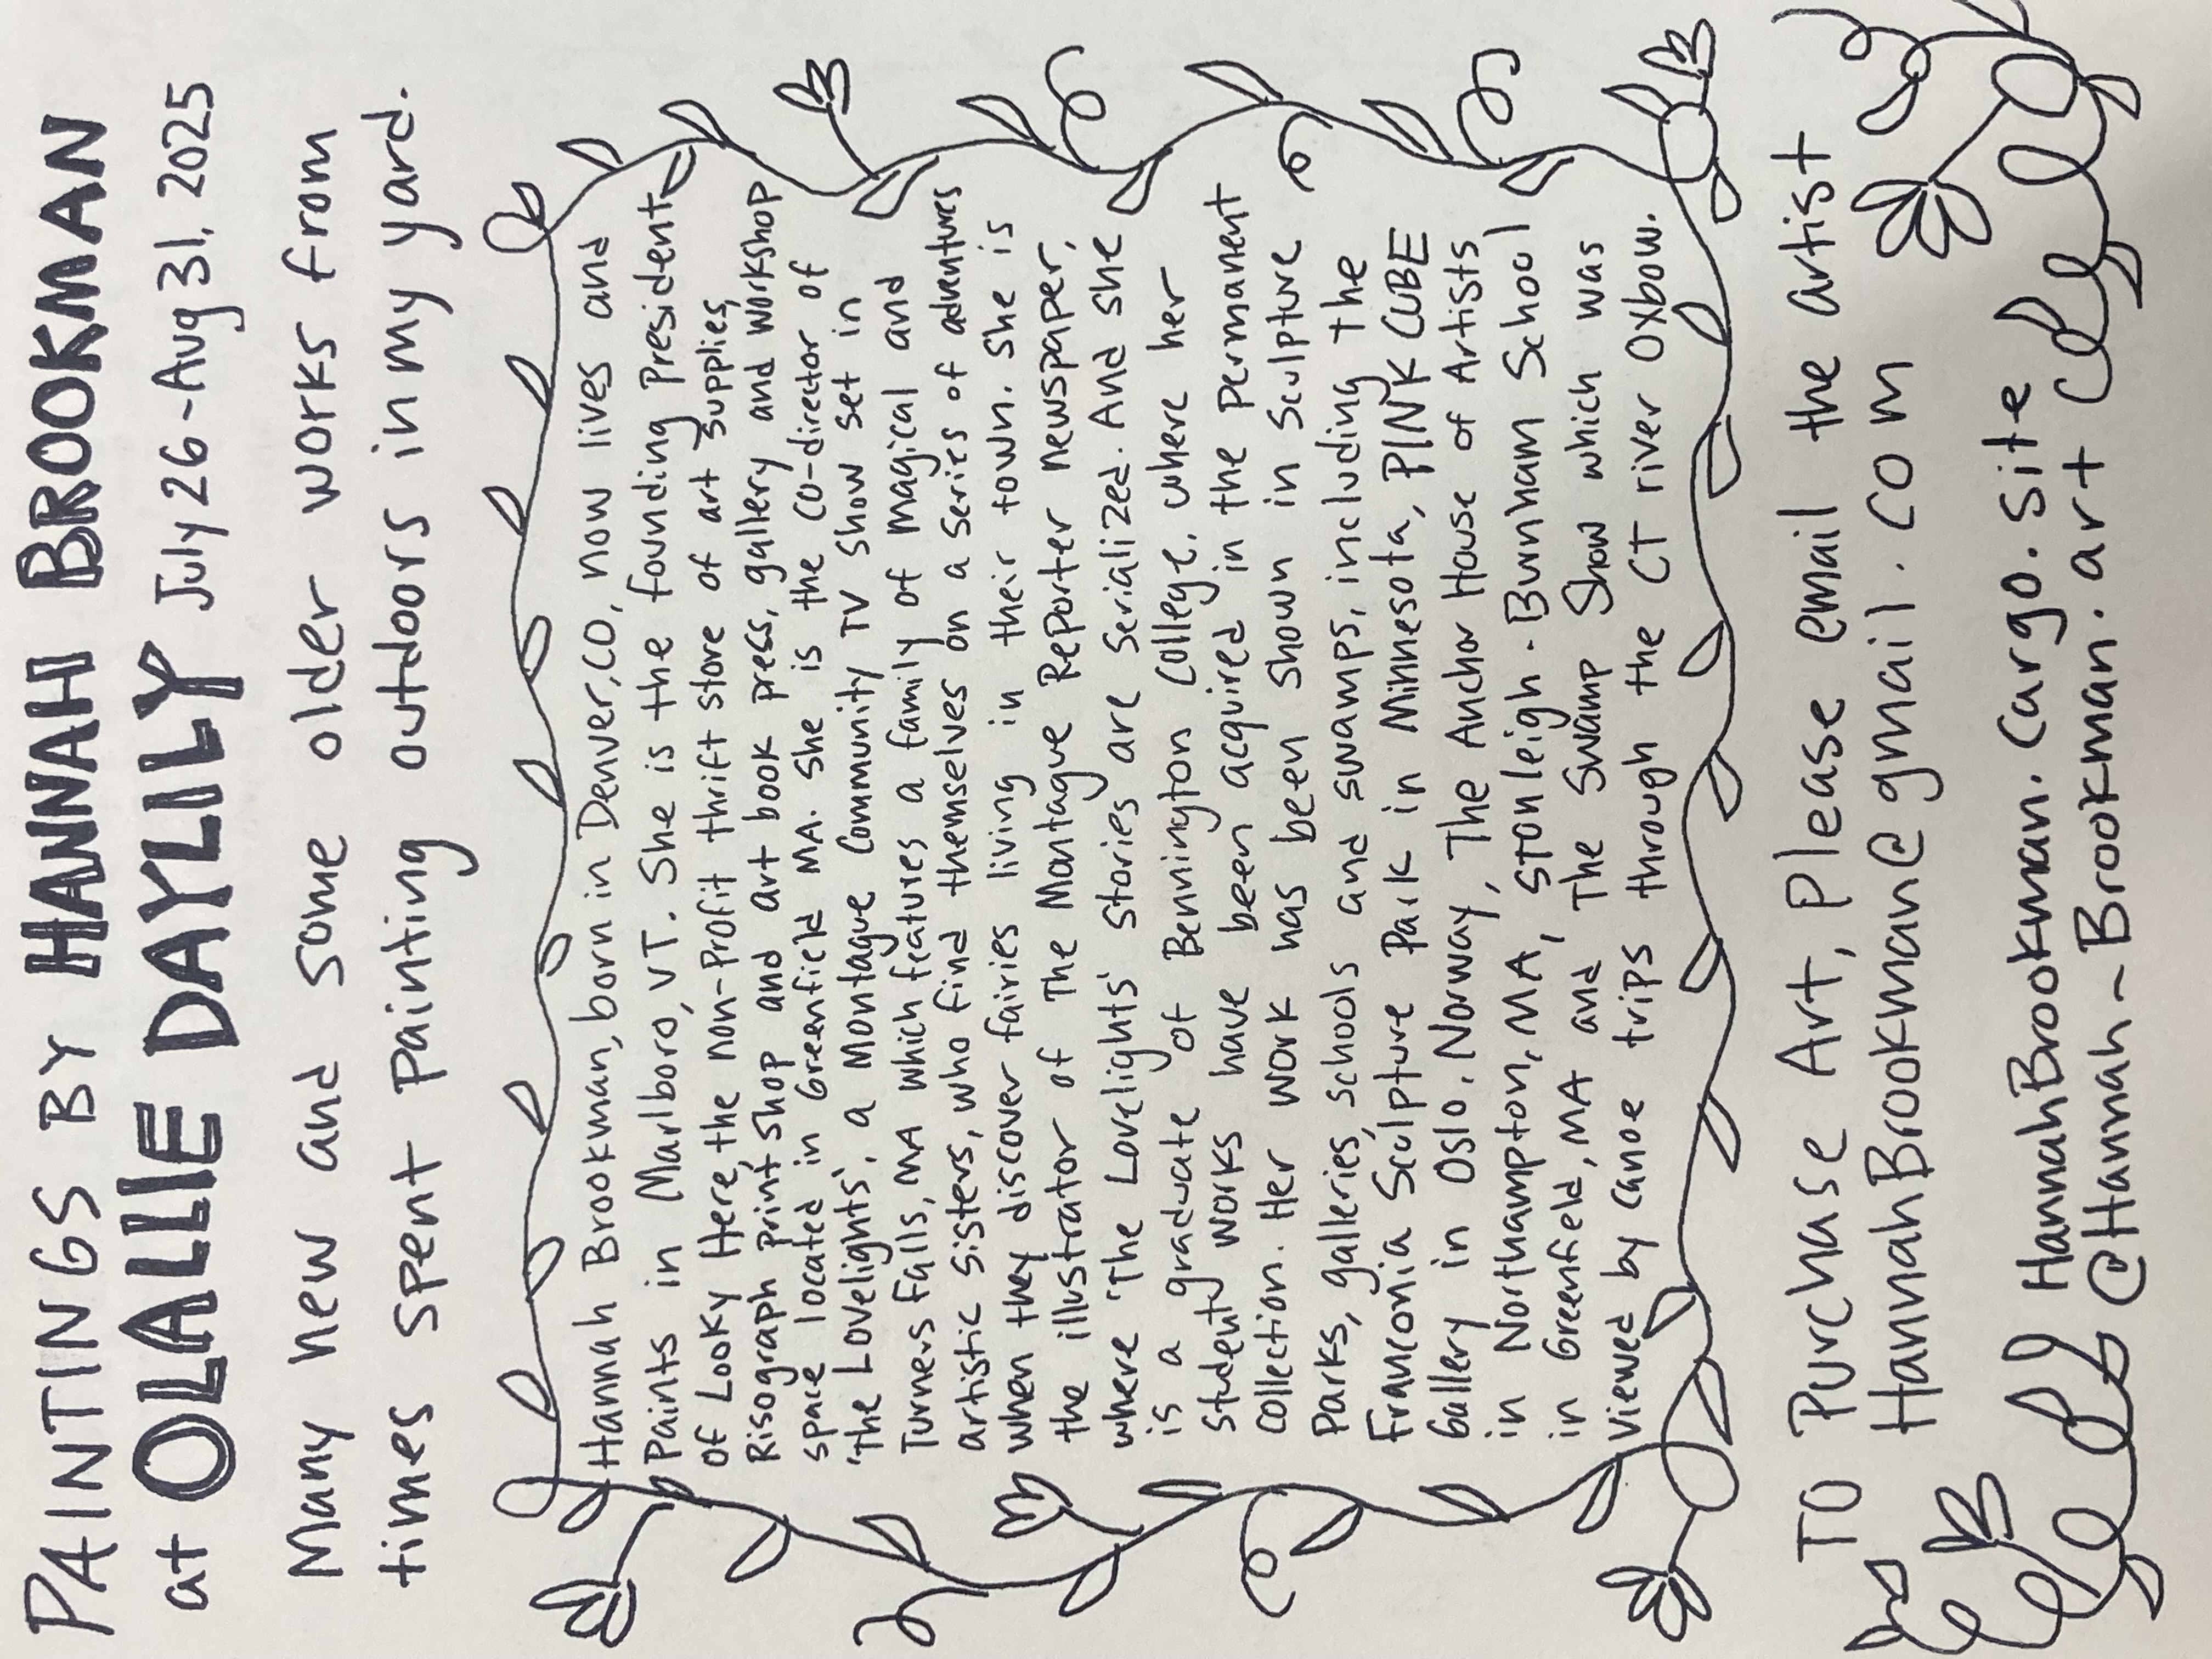 PAINTINGS BY HANNAH BROOKMAN
at OLALLIE DAYLILY July 26-Aug 31, 2025
Many new and some older works from
times spent painting outdoors in my yard.
Hannah Brookman, born in Denver, CO, now lives and
Paints in Marlboro, VT. She is the founding President
of Looky Here, the non-profit thrift store of art supplies,
Risograph print shop and art book press, gallery and workshop
space located in Greenfield MA. She is the co-director of
'The Lovelights', a Montague Community TV show set in
Turners Falls, MA which features a family of magical and
artistic sisters, who find themselves on a series of adventures
when they discover fairies living in their town. She is
the illustrator of The Montague Reporter newspaper,
where 'The Lovelights' stories are serialized. And she
is a graduate of Bennington College, where her
student works have been acquired in the permanent
collection. Her work has been shown in Sculpture
Parks, galleries, schools and swamps, including the
Franconia Sculpture Park in Minnesota, PINK CUBE
Gallery in Oslo, Norway, The Anchor House of Artists
in Northampton, MA, Stonleigh-Burnham School
in Greenfield, MA and The Swamp Show which was
viewed by canoe trips through the CT river Oxbow.
TO Purchase Art, please email the artist
HannahBrookman@gmail.com
HannahBrookman.cargo.site
@Hannah-Brookman.art